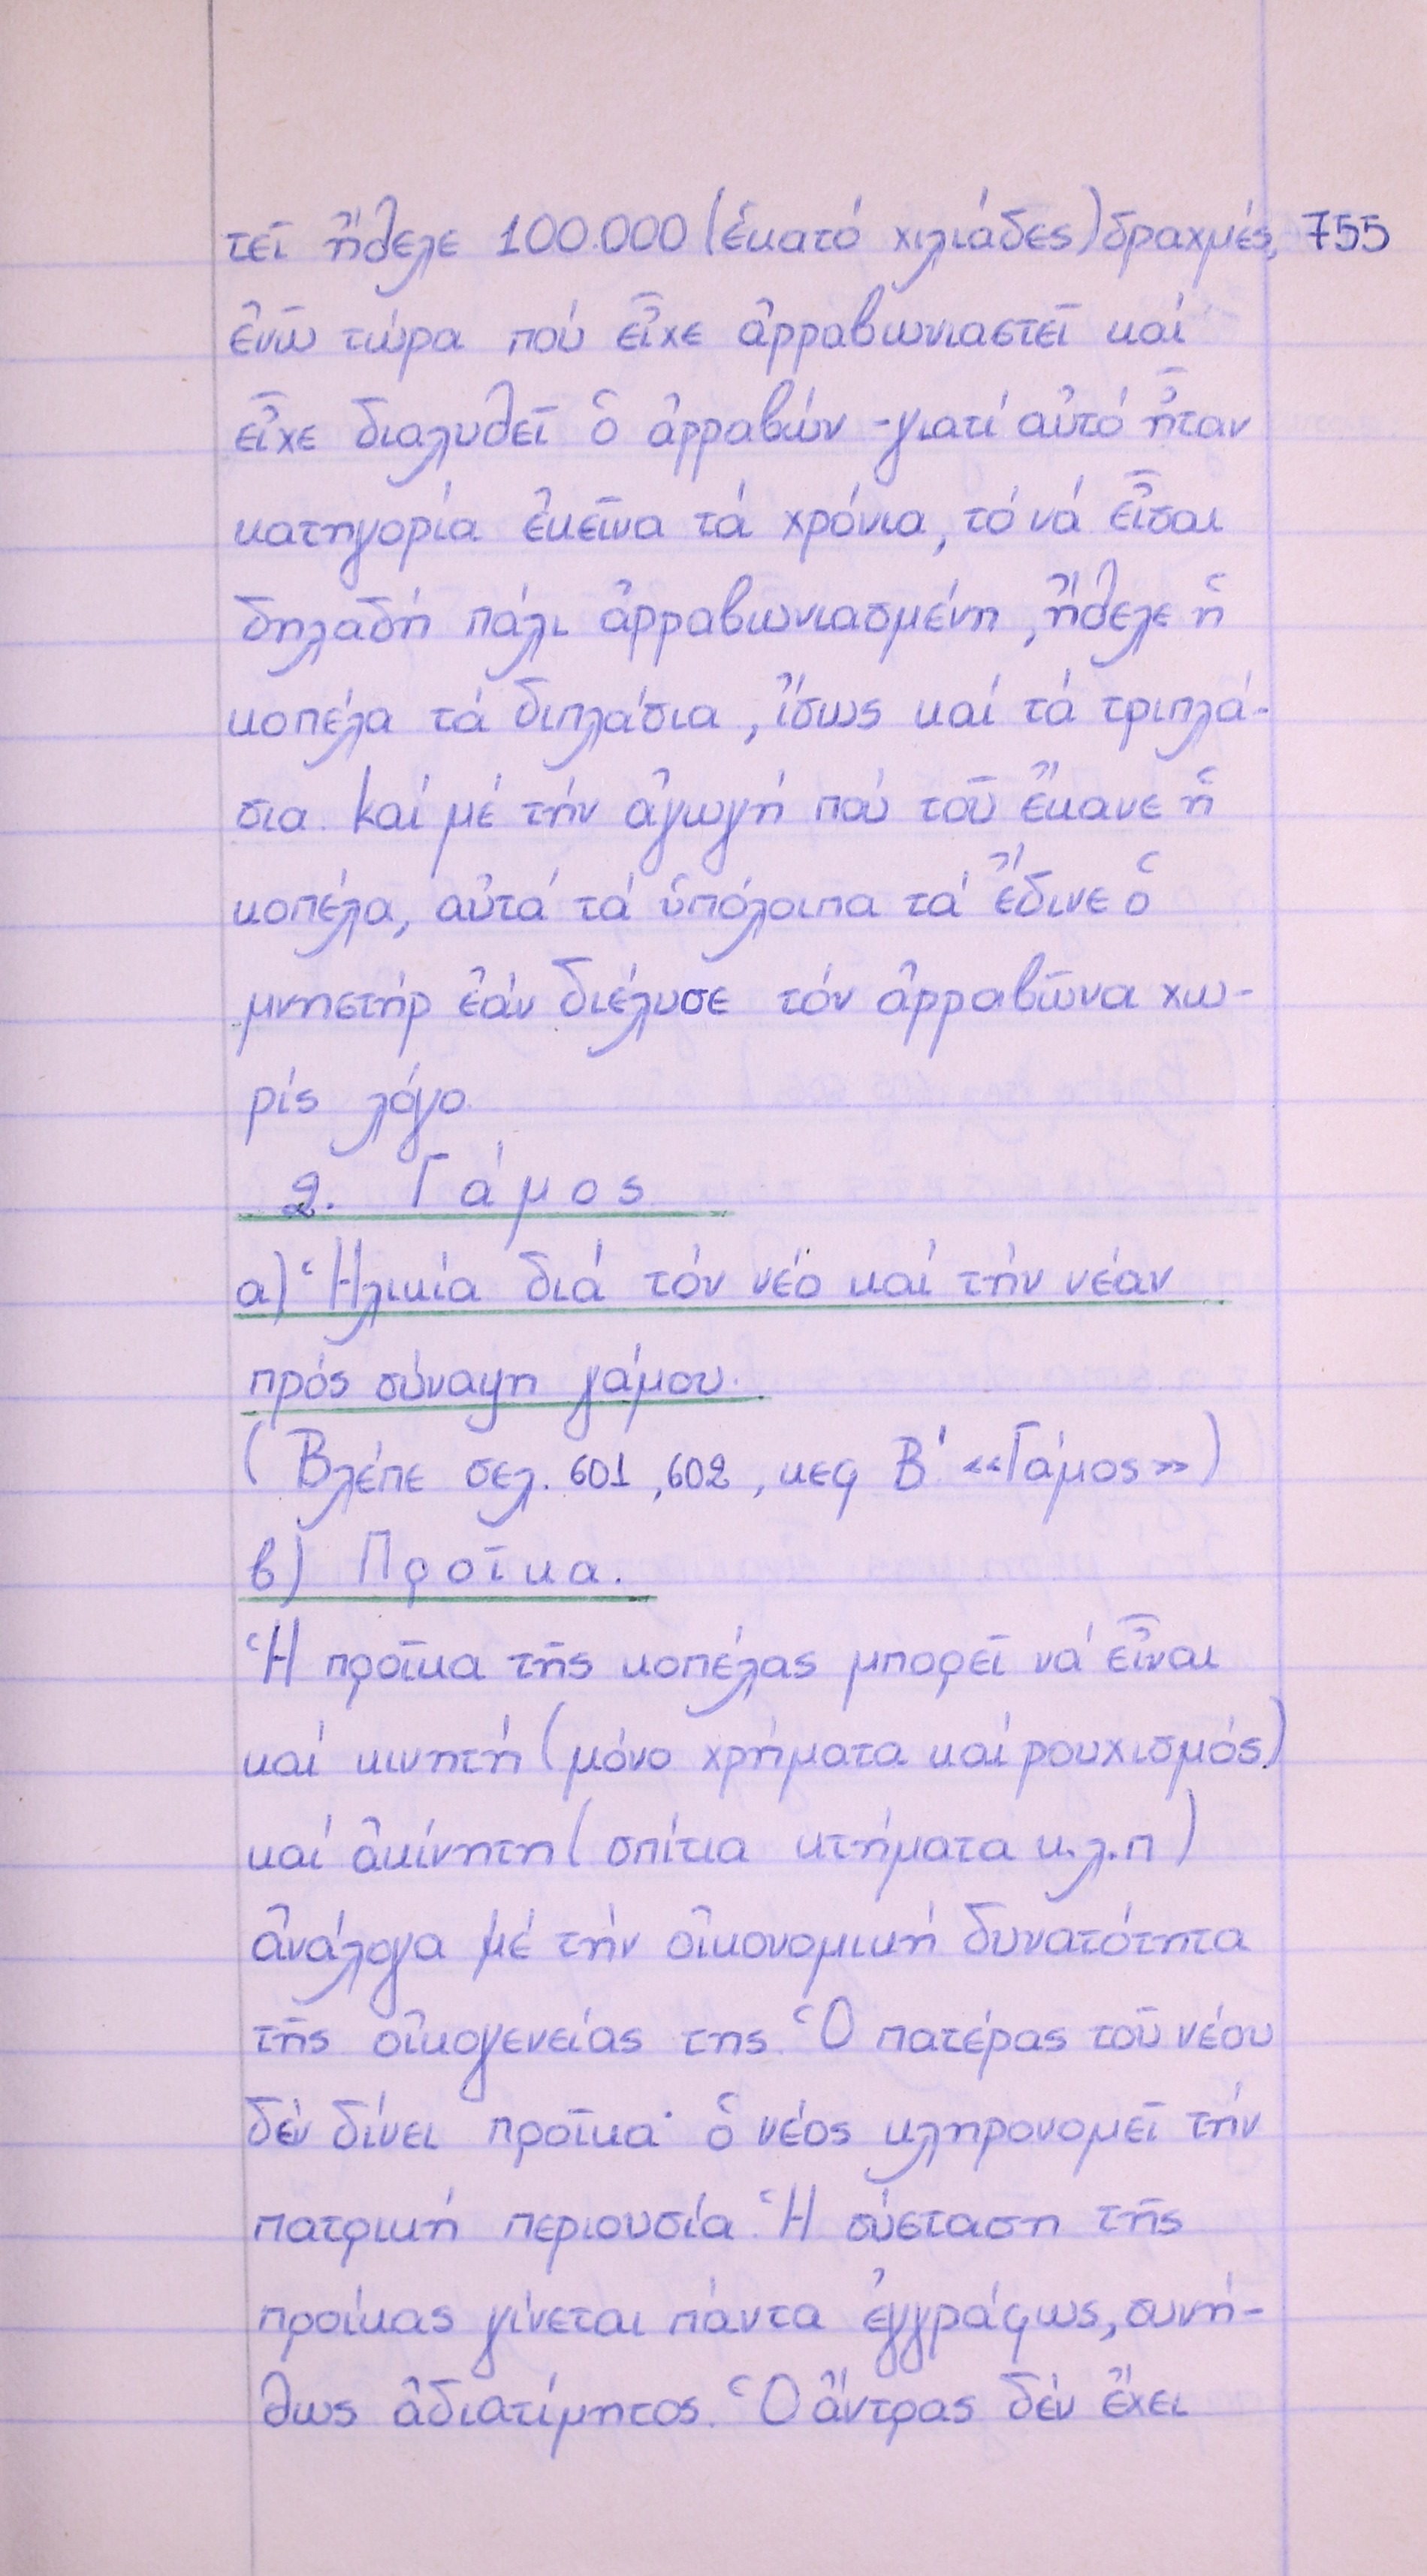 τεῖ ἤθελε 100.000 (ἑκατό χιλιάδες) δραχμές, 755
ἐνῶ τώρα πού εἶχε ἀρραβωνιαστεῖ καί
εἶχε διαλυθεῖ ὁ ἀρραβών - γιατί αὐτό ἦταν
κατηγορία ἐκεῖνα τά χρόνια, τό νά εἶσαι
δηλαδή πάλι ἀρραβωνιασμένη, ἤθελε ἡ
κοπέλα τά διπλάσια, ἴσως καί τά τριπλά-
σια. Καί μέ τήν ἀγωγή πού τοῦ ἔκανε ἡ
κοπέλα, αὐτά τά ὑπόλοιπα τά ἔδινε ὁ
μνηστήρ ἐάν διέλυσε τόν ἀρραβῶνα χω-
ρίς λόγο.
2. Γάμος
α) Ἡλικία διά τόν νέο καί τήν νέαν
πρός σύναψη γάμου.
(Βλέπε σελ. 601, 602, κεφ Β΄ «Γάμος»)
β) Προῖκα.
Ἡ προῖκα τῆς κοπέλας μπορεῖ νά εἶναι
καί κινητή (μόνο χρήματα καί ρουχισμός)
καί ἀκίνητη (σπίτια κτήματα κ.λ.π)
ἀνάλογα μέ τήν οἰκονομική δυνατότητα
τῆς οἰκογενείας της. Ὁ πατέρας τοῦ νέου
δέν δίνει προῖκα· ὁ νέος κληρονομεῖ τήν
πατρική περιουσία. Ἡ σύσταση τῆς
προίκας γίνεται πάντα ἐγγράφως, συνή-
θως ἀδιατίμητος. Ὁ ἄντρας δέν ἔχει